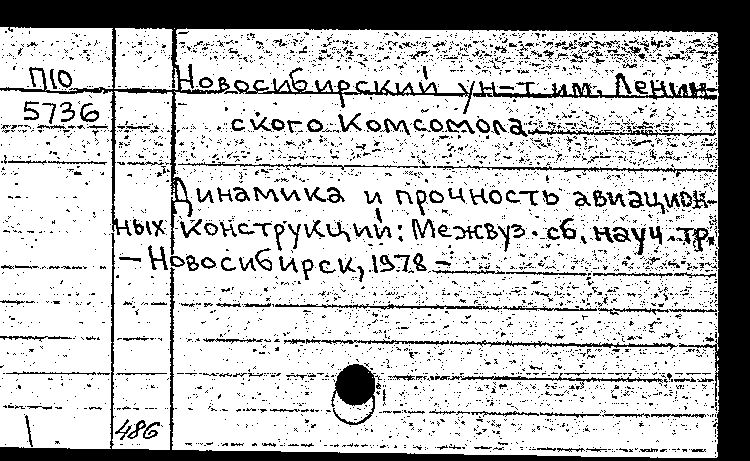 П10
5736
Новосибирский ун-т им. Ленин-
ского Комсомола
Динамика и прочность авиацион-
ных конструкций: Межвуз. сб. науч. тр.
— Новосибирск, 1978 —
486